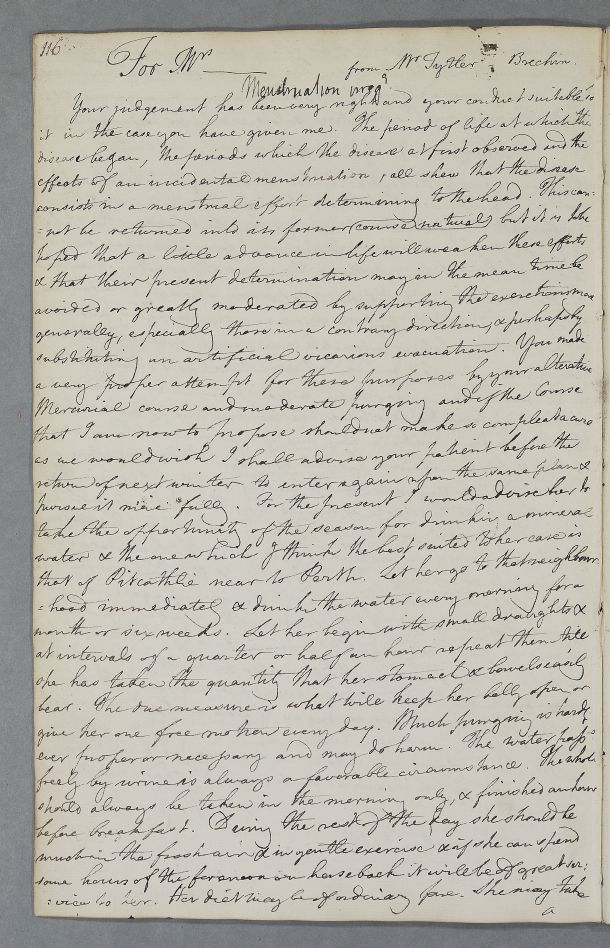 116
For Mrs —— from Mr Tytler Brechin.
Menstruation irreg
Your judgement has been very right and your conduct suitable to
it in the case you have given me. The period of life at which the
disease began, the periods which the disease at first observed and the
effects of an incidental menstruation, all shew that the disease
consists in a menstrual effort determining to the head. This can=
=not be returned into its former (course natural) but it is to be
hoped that a little advance in life will weaken these efforts
& that their present determination may in the mean time be
avoided or greatly moderated by supporting the excretions more
generally, especially those in a contrary direction, & perhaps by
substituting an artificial vicarious evacuation. You made
a very proper attempt for these purposes by your alterative
Mercurial course and moderate purging and if the Course
that I am now to propose should not make so compleat a cure
as we would wish I shall advise your patient before the
return of next winter to enter again upon the same plan &
pursue it more fully. For the present I would advise her to
take the opportunity of the season for drinking a mineral
water & the one which I think the best suited to her case is
that of Pitcathlie near to Perth. Let her go to that neighbour
=hood immediately & drink the water every morning for a
month or six weeks. Let her begin with small draughts &
at intervals of a quarter or half an hour repeat them till
she has taken the quantity that her stomach & bowels easily
bear. The due measure is what will keep her belly open or
give her one free motion every day. Much purging is hardly
ever proper or necessary and may do harm. The water pass=
freely by urine is always a favorable circumstance. The whole
should always be taken in the morning only, & finished an hour
before breakfast. During the rest of the day she should be
much in the fresh air & in gentle exercise & if she can spend
some hours of the forenoon on horseback it will be of great ser:
:vice to her. Her diet may be of ordinary fare. She may take
a